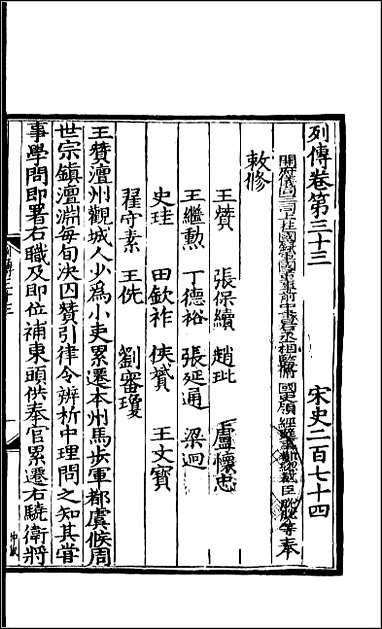 列傳卷第三十三　宋史二百七十四
開府儀同三司上柱國錄軍國重事前中書右丞相監修國史領經筵事都總裁臣脫脫等奉
敕修
王贊　張保續　趙玭　盧懷忠
王繼勳　丁德裕　張延通　梁迥
史珪　田欽祚　侯贇　王文寶
翟守素　王侁　劉審瓊
王贊澶州觀城人少為小吏累遷本州馬步軍都虞候周
世宗鎮澶淵每旬決囚贊引律令辨析中理問之知其嘗
事學問即署右職及即位補東頭供奉官累遷右驍衛將